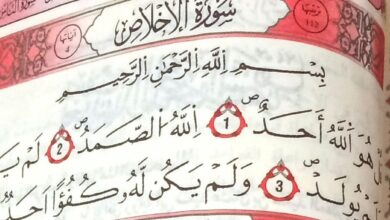 سُورَةُ الْإِخْلَاصِ
بِسْمِ اللَّهِ الرَّحْمَٰنِ الرَّحِيمِ
هُوَ اللَّهُ أَحَدٌ ۝1 اللَّهُ الصَّمَدُ ۝2 لَمْ
يُولَدْ ۝3 وَلَمْ يَكُن لَّهُ كُفُوًا أَحَدٌ